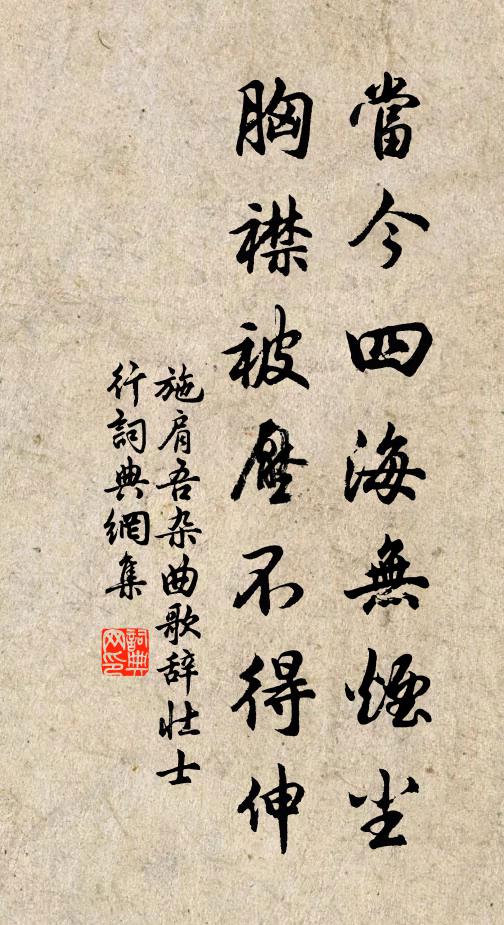 當今四海無煙尘
胸襟被壓不得伸
施肩吾杂曲歌辞壮士
行詞典網集
詞典网印